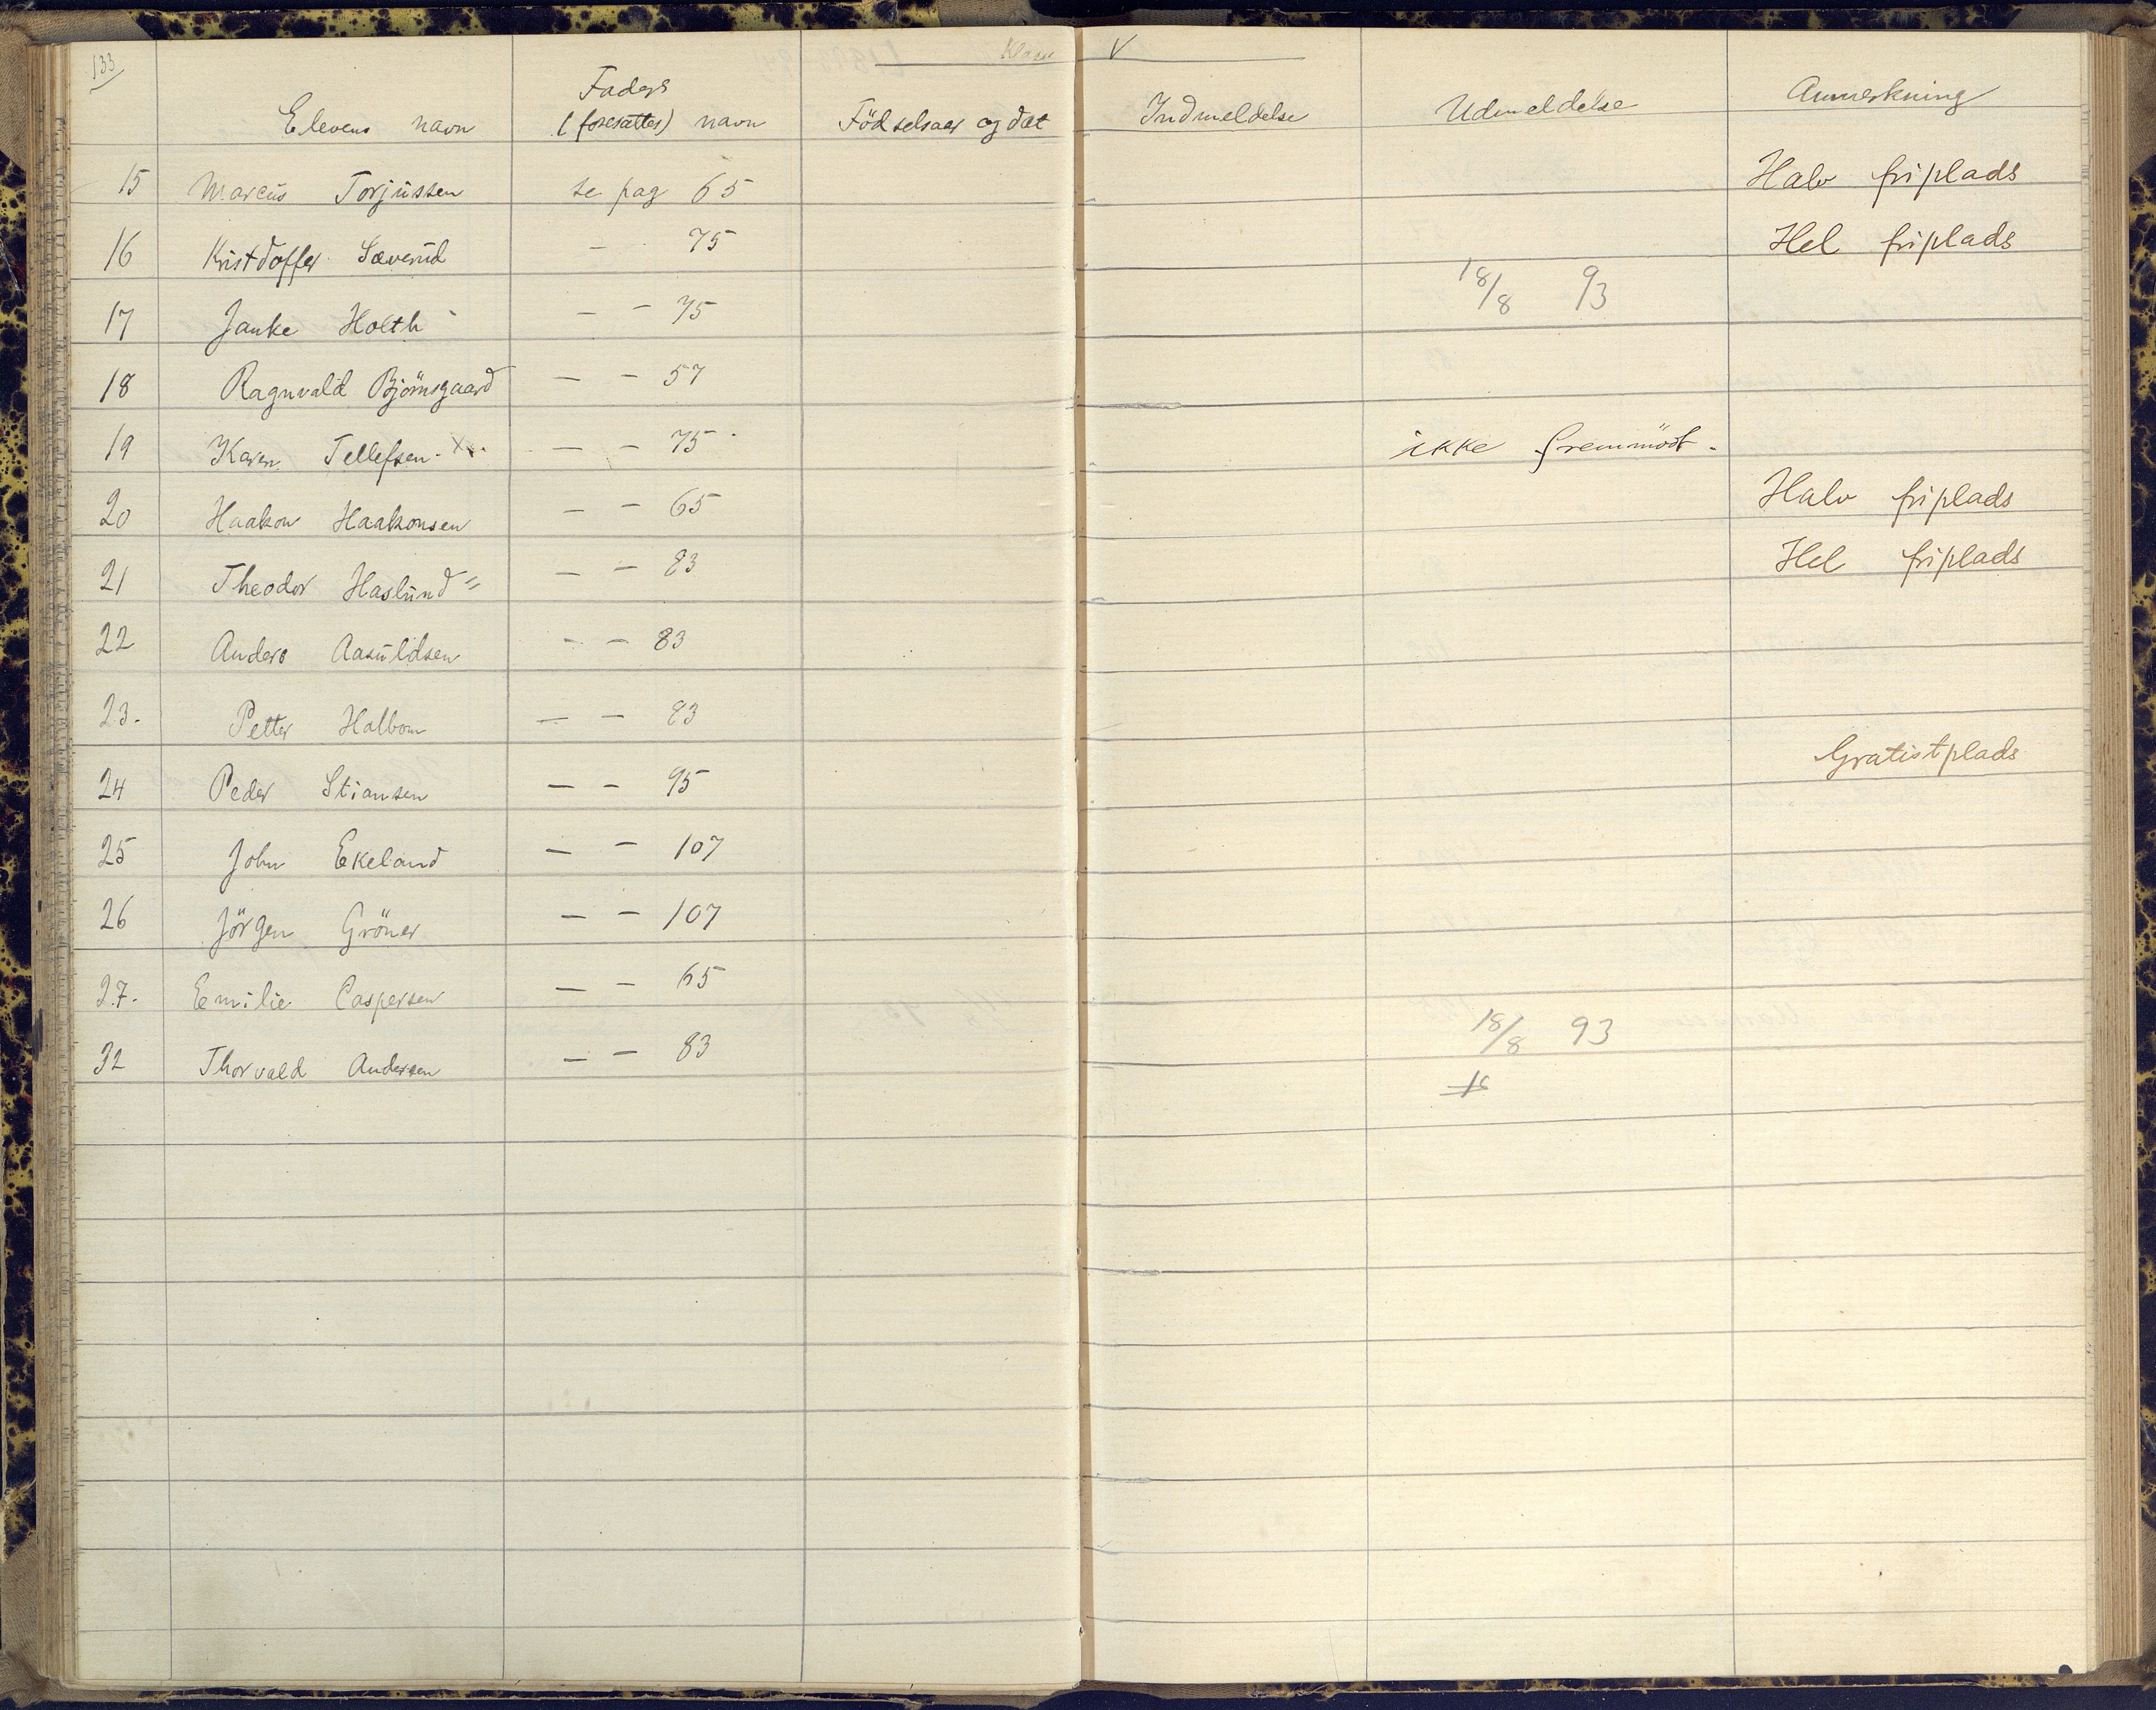 133
Klasse V
Elevens navn Faders (foresattes) navn Födselsaar og dat Indmeldelse Udmeldelse Anmerkning
15 Marcus Torjussen se pag 65 Halv friplads
16 Kristdoffer Saverud - 75 Hel friplads
17 Janke Holth - - 75 18/8 93
18 Ragnvald Björnsgaard - - 57
19 Karen Tellefsen. x - - 75 ikke fremmödt.
20 Haakon Haakonsen - - 65 Halv friplads
21 Theodor Haslund = - - 83 Hel friplads
22 Anders Aasuldsen - - 83
23. Petter Halbom - - 83
24 Peder Stiansen - - 95 Gratistplads
25 John Ekeland - - 107
26 Jörgen Gröner - - 107
27. Emilie Caspersen - - 65
32 Thorvald Andersen - - 83 18/8 93